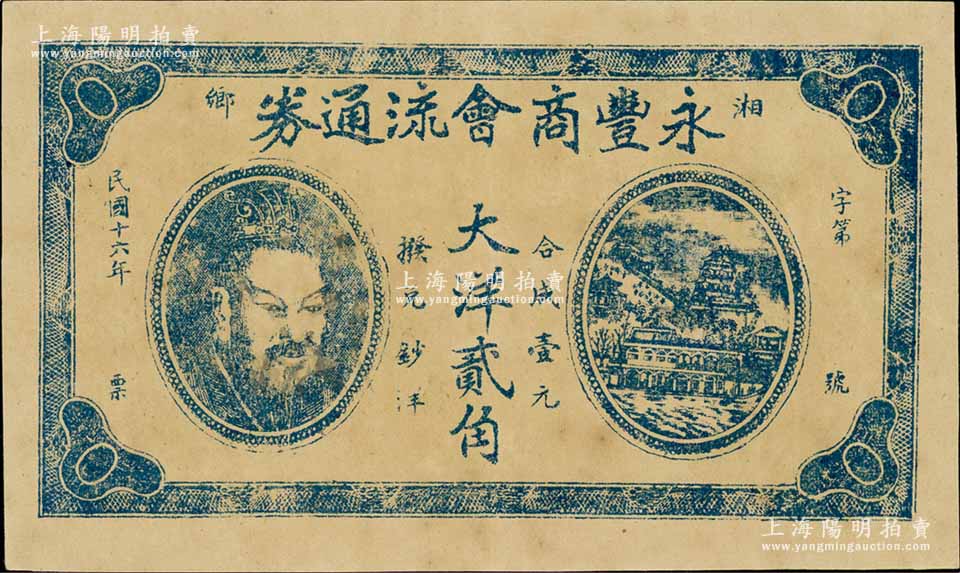 上海陽明拍賣
www.yangmingauction.com
湘鄉
永豐商會流通券
字第號
合成壹元
大洋貳角
撥兌鈔洋
民國十六年票
上海陽明拍賣
www.yangmingauction.com
上海陽明拍賣
www.yangmingauction.com